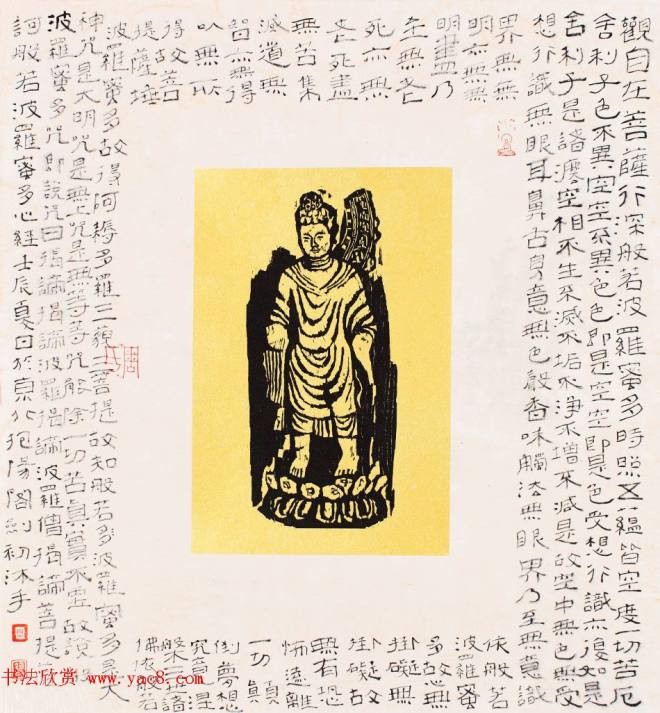 觀自在菩薩行深般若波羅蜜多時照五蘊皆空度一切苦厄
舍利子色不異空空不異色色即是空空即是色受想行識亦復如是
舍利子是諸法空相不生不滅不垢不淨不增不減是故空中無色無受
想行識無眼耳鼻舌身意無色聲香味觸法無眼界乃至無意識
界無無
明亦無無
明盡乃
至無老
死亦無
老死盡
無苦集
滅道無
智亦無得
以無所
得故菩
提薩埵
依般若
波羅蜜
多故心
掛礙無
掛礙故
無有恐
怖遠離
一切顛
倒夢想
究竟涅
槃三世諸
佛依般若
波羅蜜多故得阿耨多羅三藐三菩提故知般若多波羅蜜多是大
神咒是大明咒是無上咒是無等等咒能除一切苦真實不虛故說般
波羅蜜多咒即說咒曰揭諦揭諦波羅揭諦波羅僧揭諦菩提
訶般若波羅蜜多心經壬辰夏日於京北抱陽閣劍初沐手
书法欣赏 www.yac8.com